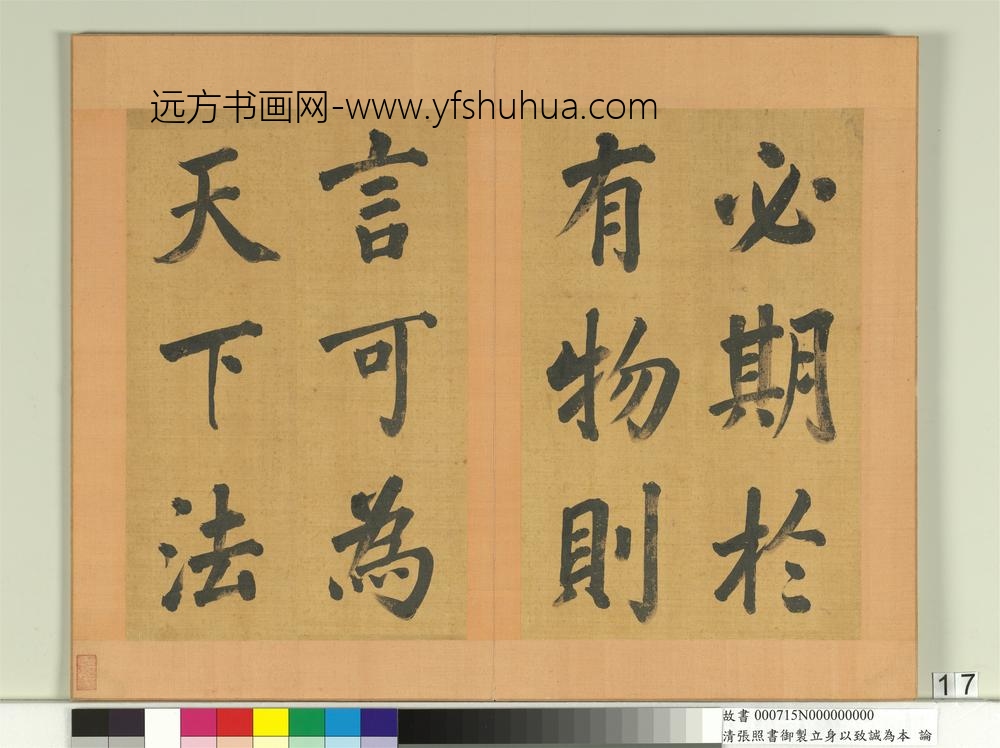 远方书画网-www.yfshuhua.com
必期於
有物則
言可為
天下法
17
故書 000715N000000000
清張照書御製立身以致誠為本 論